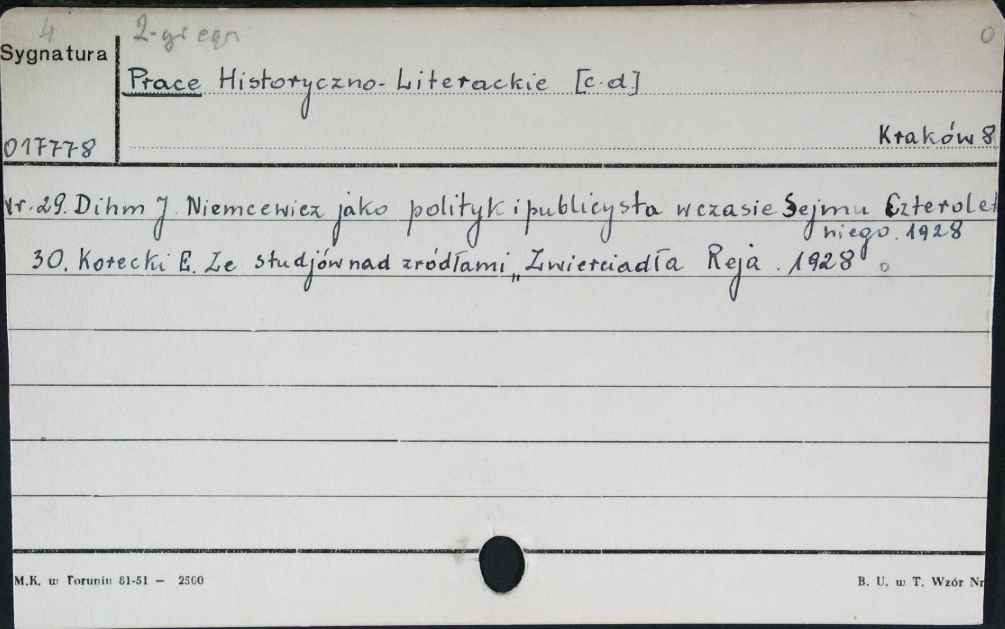 4
Sygnatura
Prace Historyczno-Literackie [c.d]
Kraków 8
017778
nr. 29. Dihm J. Niemcewicz jako polityk i publicysta w czasie Sejmu Czterolet
niego. 1928
30. Kotecki E. Ze studjów nad zródłami „Zwierciadła Reja. 1928
M.K. w Toruniu 81-51 — 2500
B. U. w T. Wzór Nr